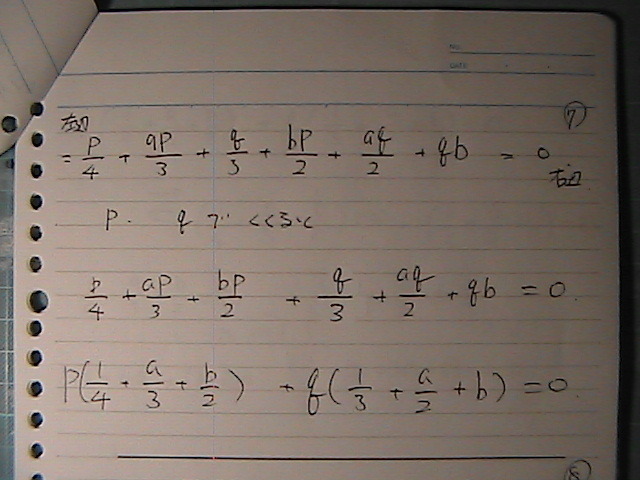 NO.
DATE
⑦
左辺
= p/4 + ap/3 + q/3 + bp/2 + aq/2 + qb = 0
右辺
p. q で くくると
p/4 + ap/3 + bp/2 + q/3 + aq/2 + qb = 0.
p(1/4 + a/3 + b/2) + q(1/3 + a/2 + b) = 0.